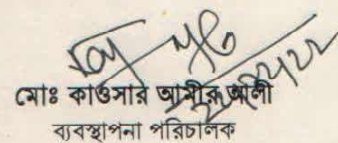 মোঃ কাওসার আমীর আলী
ব্যবস্থাপনা পরিচালক